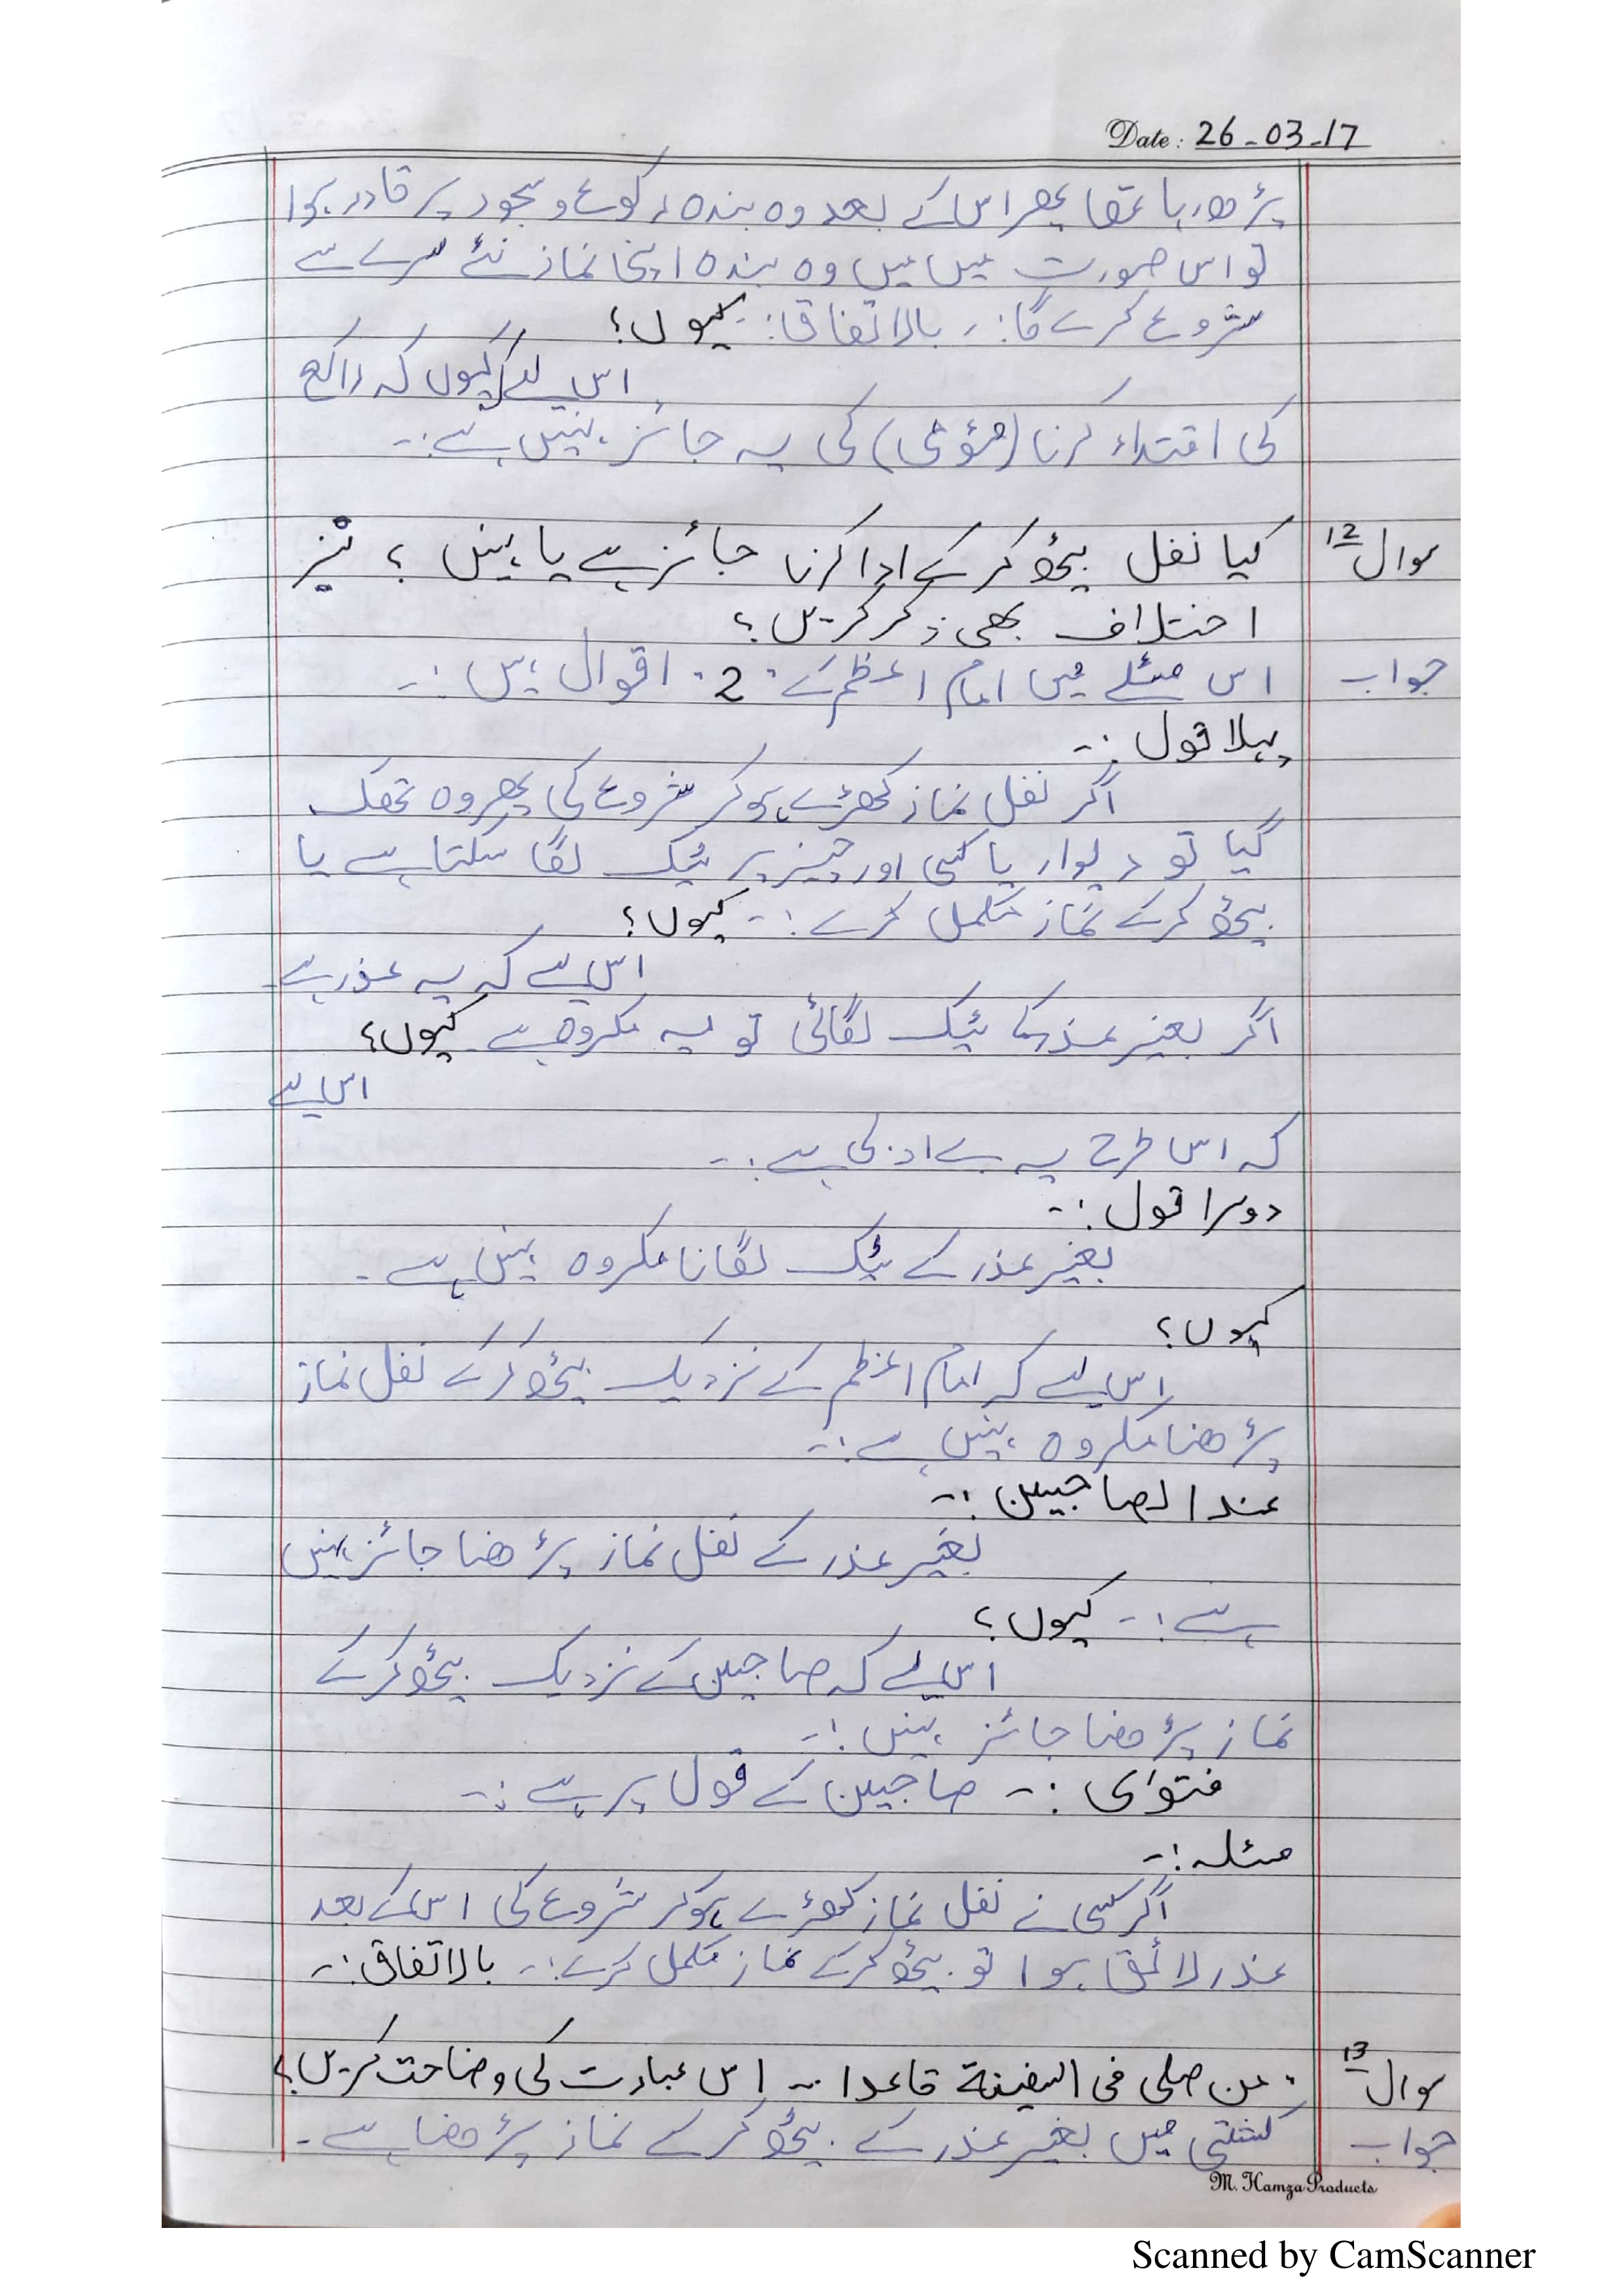 Date: 26-03-17
پڑھ رہا تھا پھر اس کے بعد وہ بندہ رکوع و سجود پر قادر ہوا
تو اس صورت میں میں وہ بندہ اپنی نماز نئے سرے سے
شروع کرے گا:, بالاتفاق:- کیوں؟
اس لئے کیوں کہ راکع
کی اقتداء کرنا (مؤمی) کی یہ جائز نہیں ہے:-
سوال 12 کیا نفل بیٹھ کر کے ادا کرنا جائز ہے یا نہیں ؟ نیز
اختلاف بھی ذکر کریں؟
جواب اس مسئلے میں امام اعظم کے "2" اقوال ہیں :-
پہلا قول :-
اگر نفل نماز کھڑے ہو کر شروع کی پھر وہ تھک
گیا تو دیوار یا کسی اور چیز پر ٹیک لگا سکتا ہے یا
بیٹھ کر کے نماز مکمل کرے :- کیوں؟
اس لیے کہ یہ عذر ہے
اگر بغیر عذر کا ٹیک لگائی تو یہ مکروہ ہے کیوں؟
اس لیے
کہ اس طرح یہ بے ادبی ہے :-
دوسرا قول :-
بغیر عذر کے ٹیک لگانا مکروہ نہیں ہے -
کیوں؟
اس لیے کہ امام اعظم کے نزدیک بیٹھ کر کے نفل نماز
پڑھنا مکروہ نہیں ہے :-
عند الصاحبین :-
بغیر عذر کے نفل نماز پڑھنا جائز نہیں
ہے :- کیوں؟
اس لیے کہ صاحبین کے نزدیک بیٹھ کر کے
نماز پڑھنا جائز نہیں :-
فتوای :- صاحبین کے قول پر ہے :-
مسئلہ :-
اگر کسی نے نفل نماز کھڑے ہو کر شروع کی اس کے بعد
عذر لائق ہوا تو بیٹھ کر کے نماز مکمل کرے :- بالاتفاق :-
سوال 13 من صلی فی السفینة قاعدا .. اس عبارت کی وضاحت کریں؟
جواب کشتی میں بغیر عذر کے بیٹھ کر کے نماز پڑھنا ہے -
M. Hamza Products
Scanned by CamScanner